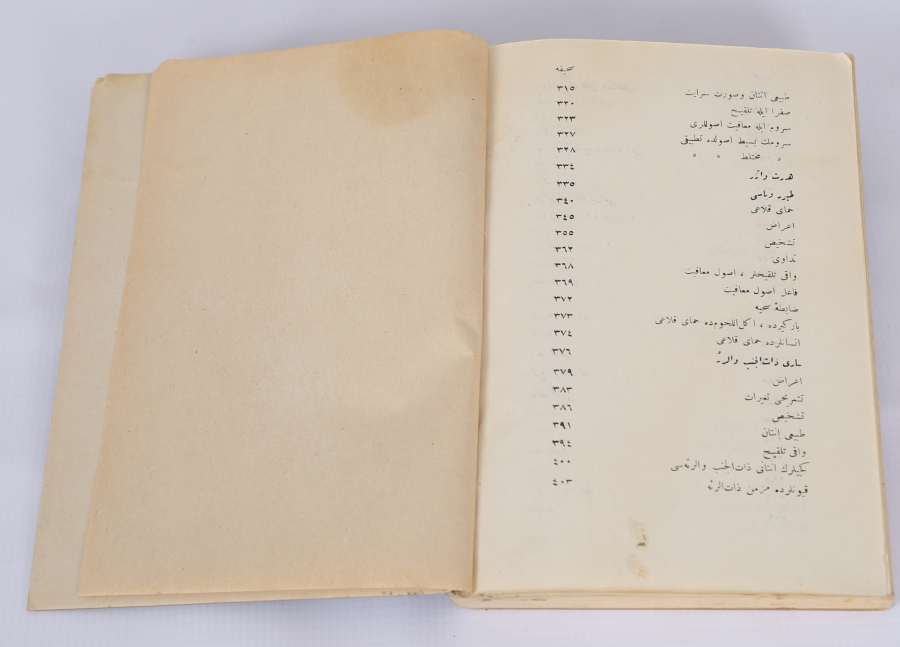 صحيفه
طبيعی انتان وصورت سرايت ٣١٥
صفرا ايله تلقيح ٣٢٠
سروم ايله معافيت اصوللری ٣٢٣
سرومك بسيط اصولده تطبيقی ٣٢٧
» مختلط » » ٣٢٨
٣٣٤
طيور وباسی ٣٣٥
حمای قلاعی ٣٤٠
اعراض ٣٤٥
تشخيص ٣٥٥
تداوی ٣٦٢
واقی تلقيحلر ، اصول معافيت ٣٦٨
فاعل اصول معافيت ٣٦٩
ضابطهٔ صحيه ٣٧٢
باركيرده ، اكل‌اللحومده حمای قلاعی ٣٧٣
انسانلرده حمای قلاعی ٣٧٤
ساری ذات‌الجنب والرئه ٣٧٦
اعراض ٣٧٩
تشريحی تغيرات ٣٨٣
تشخيص ٣٨٦
طبيعی انتان ٣٩١
واقی تلقيح ٣٩٤
كچيلرك انتانی ذات‌الجنب والرئه‌سی ٤٠٠
قيونلرده مزمن ذات‌الرئه ٤٠٣